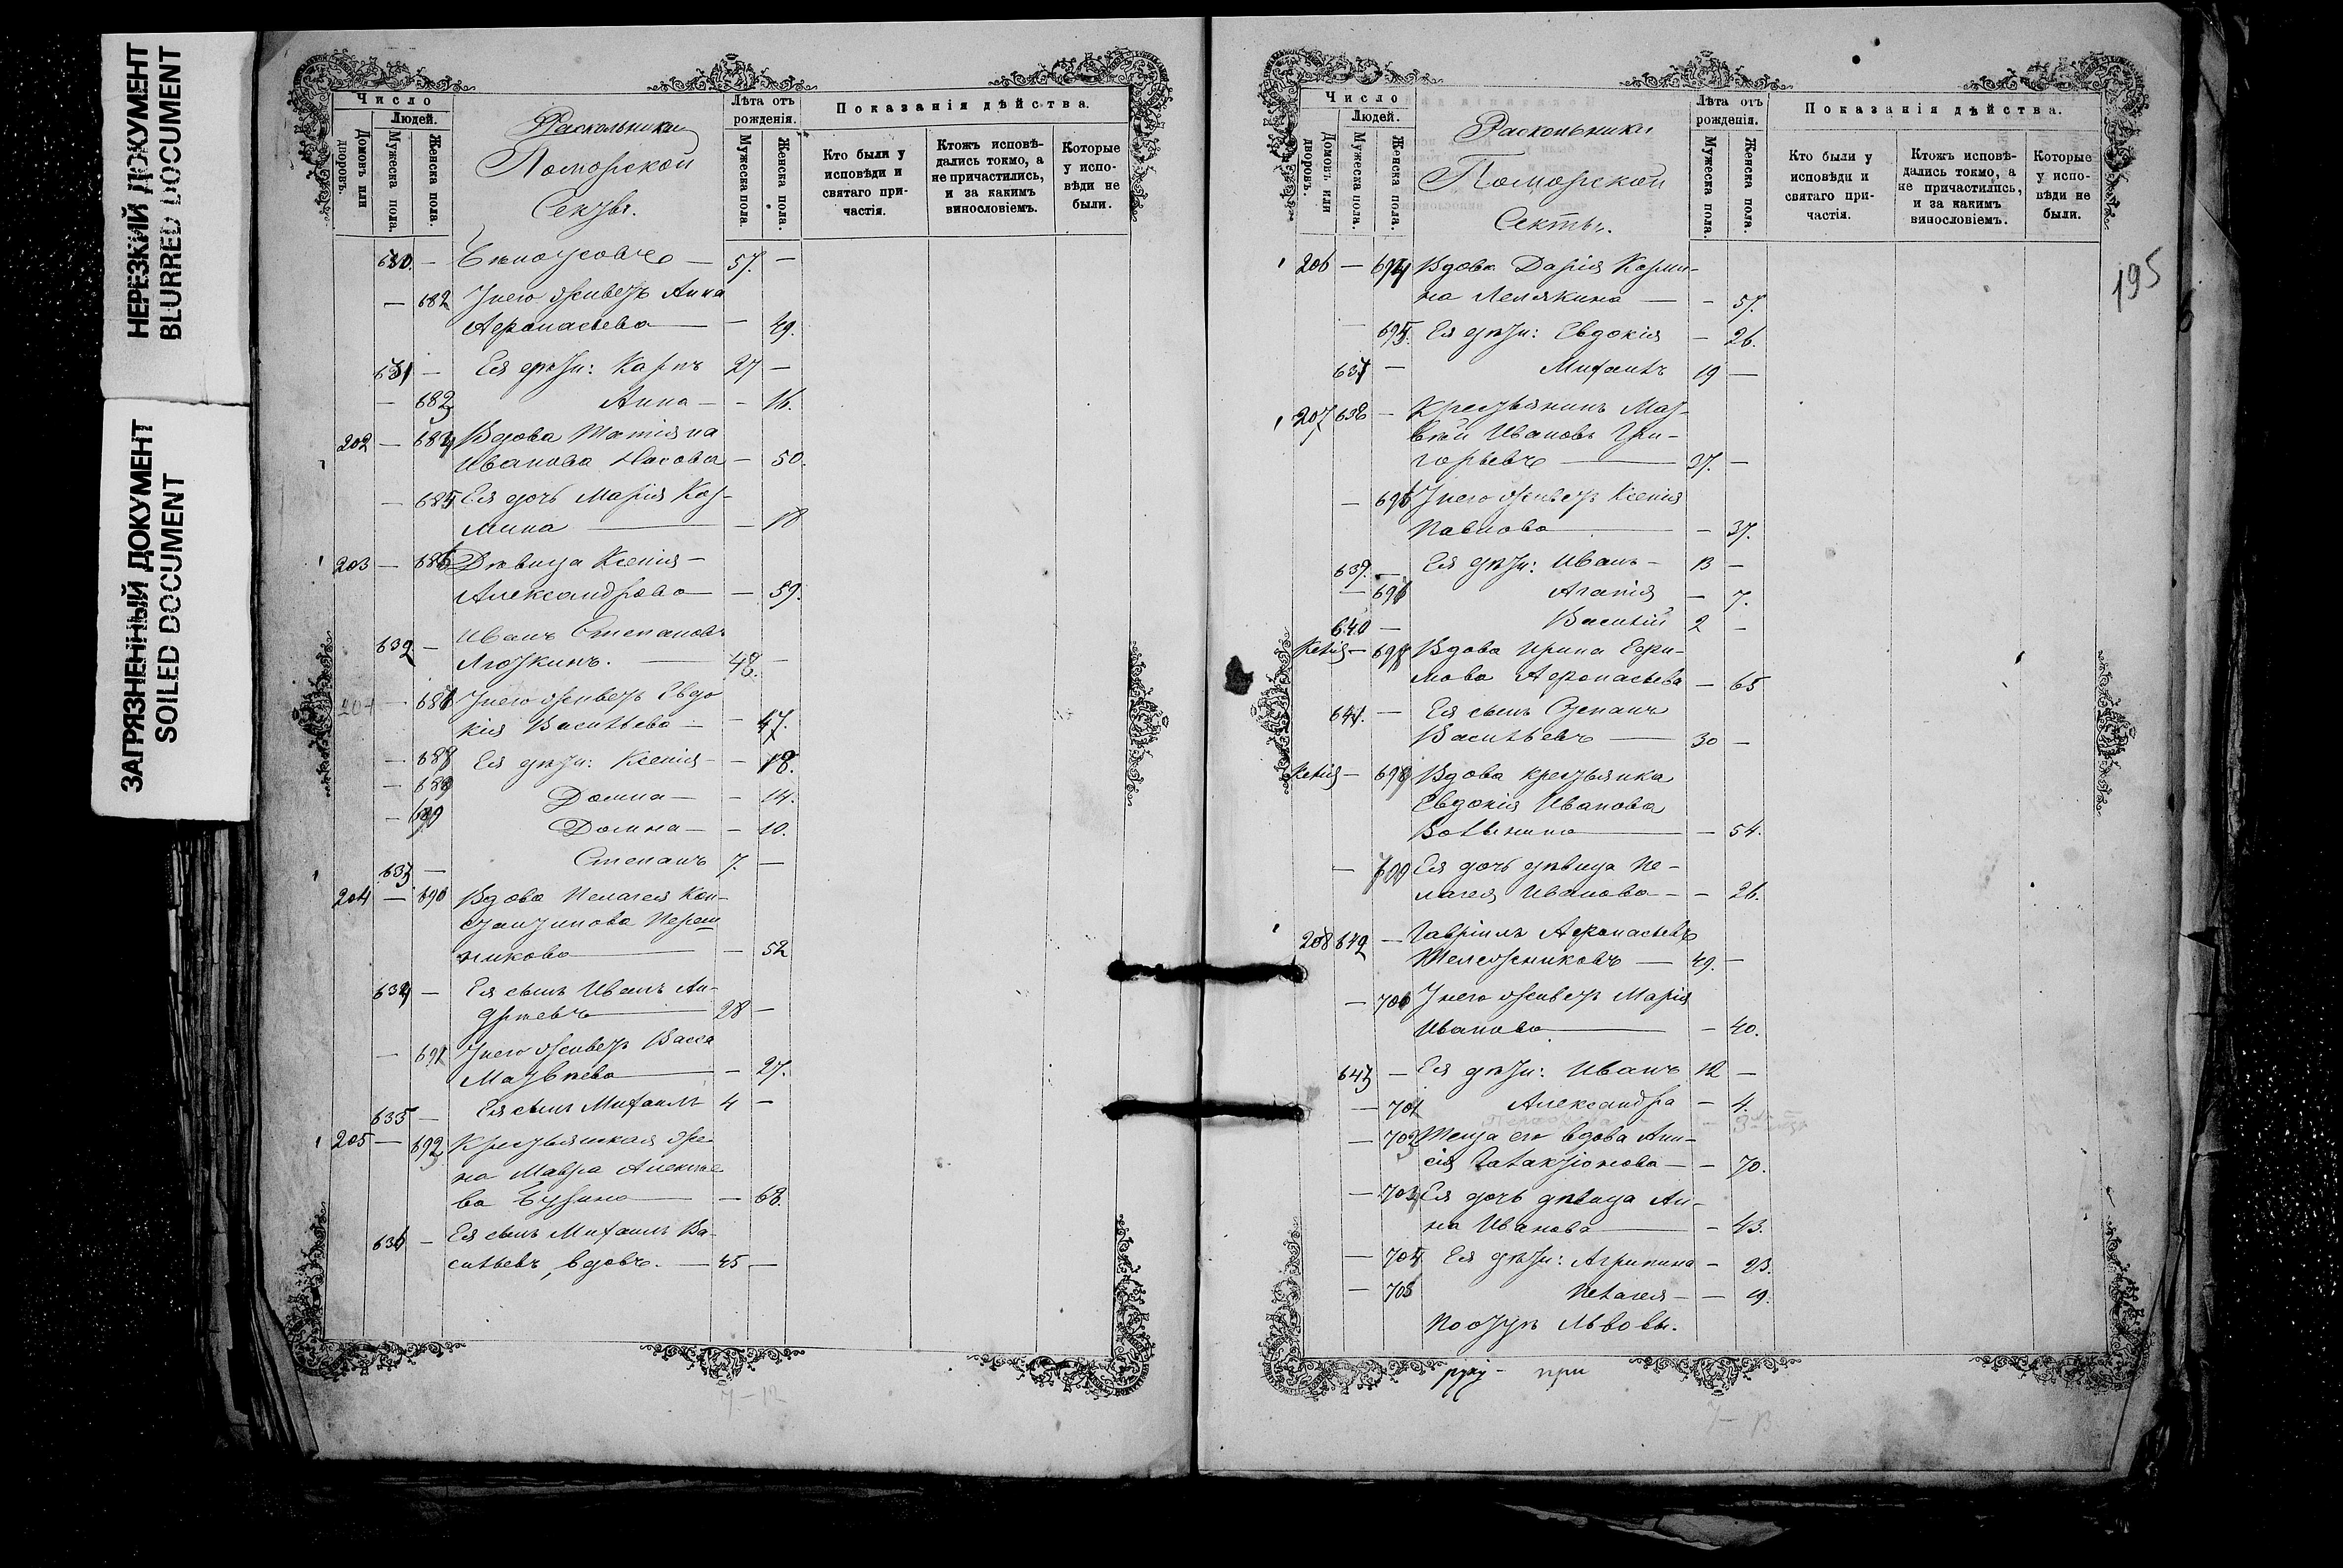 НЕРЕЗКИЙ ДОКУМЕНТ
BLURRED DOCUMENT
ЗАГРЯЗНЕННЫЙ ДОКУМЕНТ
SOILED DOCUMENT
Число
Людей.
Домовъ или дворовъ.
Мужеска пола.
Женска пола.
Раскольники
Поморской
Секты.
Лѣта отъ рожденія.
Мужеска пола.
Женска пола.
Показанія дѣйства.
Кто были у исповѣди и святаго причастія.
Ктожъ исповѣдались токмо, а не причастились, и за какимъ винословіемъ.
Которые у исповѣди не были.
57. —
— 682 У него живетъ Анна
Афонасьева — — 49.
631 — Ея дѣти: Карпъ 27 —
— 683 Анна — — 16.
202 — 684 Вдова Татіяна
Иванова Носова — 50.
— 685 Ея дочь Марія Коз-
мина — — 18
203 — 686 Дѣвица Ксенія —
Александрова — — 59.
632 — Иванъ Степановъ
Люткинъ. — 48. —
— 687 У него живетъ Евдо
кія Васильева — — 47.
— 688 Ея дѣти: Ксенія — — 18.
— 689 Домна — — 14.
— Домна — — 10.
633 — Степанъ 7. —
204 — 690 Вдова Пелагея Кон-
стантинова
никова — — 52
634 — Ея сынъ Иванъ Ан-
дреевъ — 28 —
— 691 У него живетъ Васса
Матвѣева — — 27.
635 — Ея сынъ Михаилъ 4 —
205 — 692 Крестьянская же-
на Мавра Алексѣе
ва — — 68.
636 — Ея сынъ Михаилъ Ва-
сильевъ, вдовъ. — 45 —
7 — 12
Число
Людей.
Домовъ или дворовъ.
Мужеска пола.
Женска пола.
Раскольники
Поморской
Секты.
Лѣта отъ рожденія.
Мужеска пола.
Женска пола.
Показанія дѣйства.
Кто были у исповѣди и святаго причастія.
Ктожъ исповѣдались токмо, а не причастились, и за какимъ винословіемъ.
Которые у исповѣди не были.
195
206 — 694 Вдова Дарія Карпи-
на Лелякина — — 57.
— 695. Ея дѣти: Евдокія — 26.
637 — Михаилъ 19 —
207 638 — Крестьянинъ Мат-
вѣй Ивановъ Гри-
горьевъ — 37. —
— У него живетъ Ксенія
Павлова — — 37.
639. — Ея дѣти: Иванъ — 13 —
— Агапія — 7.
640 — Василій 2 —
Келія — Вдова Ирина Ефи-
мова Афонасьева — 65
641. — Ея сынъ Степанъ
Васильевъ — 30 —
Келія — Вдова крестьянка
Евдокія Иванова
— — 54.
— Ея дочь дѣвица Пе-
лагея Иванова — — 26.
208 642 — Гавріилъ Афонасьевъ
Шележниковъ — 49. —
— 700 У него живетъ Марія
Иванова — — 40.
643 — Ея дѣти: Иванъ 12 —
— 701 Александра — 4.
— 702 Теща его вдова Ани-
сія Галактіонова — — 70.
— 703 Ея дочь дѣвица Ан-
на Иванова — — 43.
— 704 Ея дѣти: Агрипина — 23.
— 705 Пелагея — — 19.
Львовы.
руку - при
7 — 13